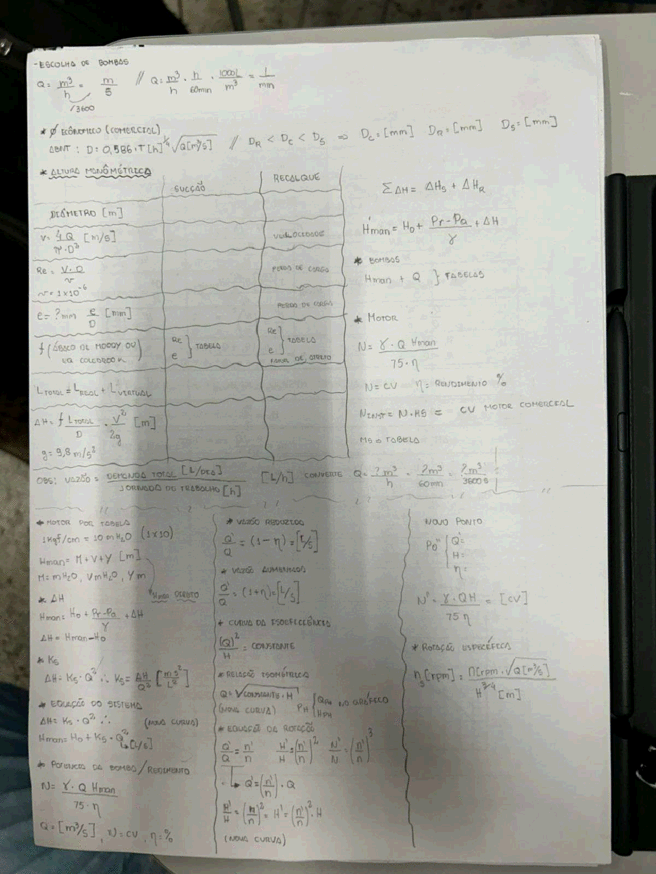 - ESCOLHA DE BOMBAS
Q = m³/h = m/s // Q = m³/h · h/60mn · 1000l/m³ = l/mn
÷3600
* Ø ECONÔMICO (COMERCIAL)
ABNT: D = 0,586 · T[h]^¼ √Q[m³/s] // DR < DC < DS ⇒ DC = [mm] DR = [mm] DS = [mm]
* ALTURA MANOMÉTRICA
SUCÇÃO RECALQUE
DIÂMETRO [m]
V = 4·Q/π·D² [m/s] VELOCIDADE
Re = V·D/ν PERDA DE CARGA
ν = 1x10⁻⁶
e = ?mm e/D [mm]
f (ÁBACO DE MOODY OU
Re e } TABELA Re e } TABELA
LTOTAL = LREAL + LVIRTUAL
ΔH = f LTOTAL/D · V²/2g [m]
g = 9,8 m/s²
Σ ΔH = ΔHS + ΔHR
Hman = H0 + Pr-Pa/γ + ΔH
* BOMBAS
Hman + Q } TABELAS
* MOTOR
N = γ · Q Hman/75 · η
N = CV η = RENDIMENTO %
NINST = N · MS = CV MOTOR COMERCIAL
MS = TABELA
OBS: VAZÃO = DEMANDA TOTAL [L/DIA]/JORNADA DE TRABALHO [h] [L/h] CONVERTE Q = ?m³/h = ?m³/60mn = ?m³/3600s
* MOTOR POR TABELA
1Kgf/cm² = 10 mH2O (1x10)
Hman = M+V+Y [m]
M = mH2O, VmH2O, Ym
* ΔH
Hman = H0 + Pr-Pa/γ + ΔH
ΔH = Hman - H0
* KS
ΔH = KS · Q² ∴ KS = ΔH/Q² [m s²/L²]
* EQUAÇÃO DO SISTEMA
ΔH = KS · Q² ∴ (NOVA CURVA)
Hman = H0 + KS · Q² [L/s]
* POTENCIA DA BOMBA/RENDIMENTO
N = γ · Q Hman/75 · η
Q = [m³/s], N = CV, η = %
* VAZÃO REDUZIDA
Q'/Q = (1-η) = [L/s]
* VAZÃO AUMENTADA
Q'/Q = (1+η) = [L/s]
* CURVA DA ISOEFICIÊNCIA
(Q)²/H = CONSTANTE
* RELAÇÃO ISOMÉTRICA
Q = √CONSTANTE · H
(NOVA CURVA)
NO GRÁFICO
* EQUAÇÃO DA ROTAÇÃO
Q'/Q = n'/n H'/H = (n'/n)² N'/N = (n'/n)³
Q' = (n'/n) · Q
H'/H = (n'/n)² = H' = (n'/n)² · H
(NOVA CURVA)
NOVO PONTO
P0" { Q': H: η:
N' = γ · QH/75 η = [CV]
* ROTAÇÃO ESPECÍFICA
ns [rpm] = n[rpm] · √Q[m³/s]/H^¾ [m]